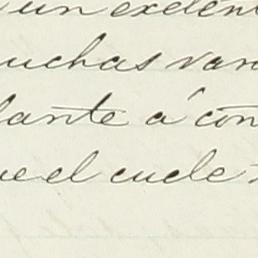 un exelen
uchas var
lante á con
ue el cuele